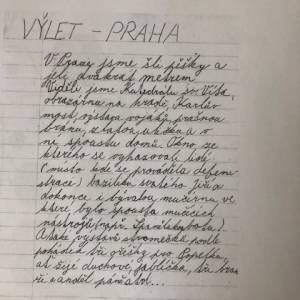 VÝLET – PRAHA
V Praze jsme šli pěšky a
jeli dvakrát metrem
Viděli jsme Katedrálu sv. Víta,
obrazárnu na hradě, Karlův
most, výstavu vojáků, prašnou
bránu, zlatou uličku a v
ní spoustu domů. Okno ze
kterého se vyhazovali lidé.
(místo kde se prováděla defen
strace) baziliku svatého Jiří a
dokonce i bývalou mučírnu ve
které bylo spousta mučících
nástrojů (např. Španělská bota)
A také výstava stromečků podle
pohádek tři oříšky pro Popelku
ať žijí duchové, jablíčka, tři bra
ři a anděl páně...